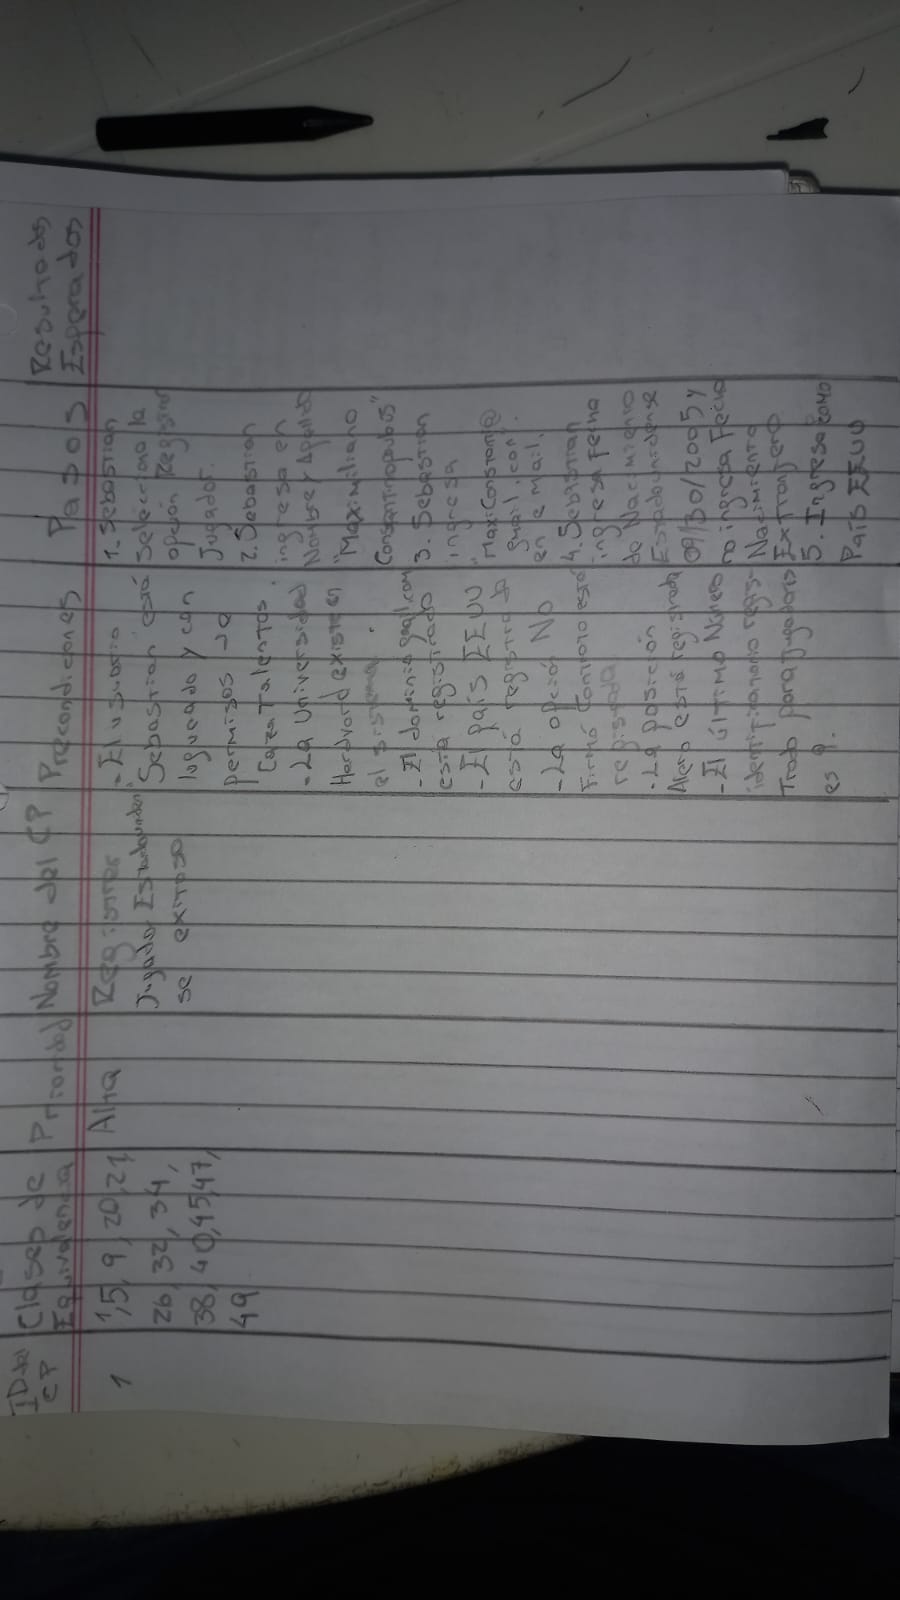 ID del
CP
Clases de
Equivalencia
Prioridad
Nombre del CP
Precondiciones
Pasos
Resultados
Esperados
1
1,5, 9, 20,21,
26, 32, 34,
38, 40,45,47,
49
Alta
Registrar
Jugador Estadouniden
se exitoso
- El usuario
Sebastian está
logueado y con
permisos de
Caza Talentos.
- La Universidad
Hardvord existe en
el sistema.
- El dominio gmail.com
está registrado
- El país EEUU
está registrado
- La opción NO
Firmó Contrato está
registrada
- La posición
Alero está registrada
- El último Número
identificatorio regis-
trado para jugadores
es 9.
1. Sebastian
Selecciona la
opción "Registrar
Jugador".
2. Sebastian
ingresa en
Nombre y Apellido
"Maximiliano
Constantinopulos"
3. Sebastian
ingresa
"MaxiConstan@
gmail.con"
en email.
4. Sebastian
ingresa Fecha
de Nacimiento
Estadounidense
09/30/2005 y
no ingresa Fecha
Nacimiento
Extranjero
5. Ingresa como
País EEUU